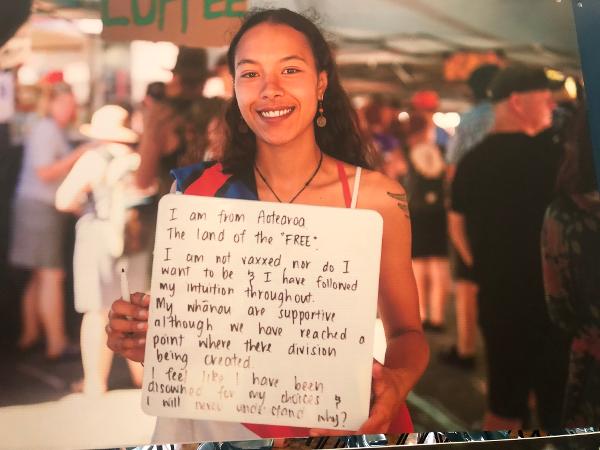 COFFEE
I am from Aotearoa
The land of the "FREE".
I am not vaxxed nor do I
want to be & I have followed
my intuition throughout.
My whānau are supportive
although we have reached a
point where there division
being created.
I feel like I have been
disowned for my choices &
I will never understand why?